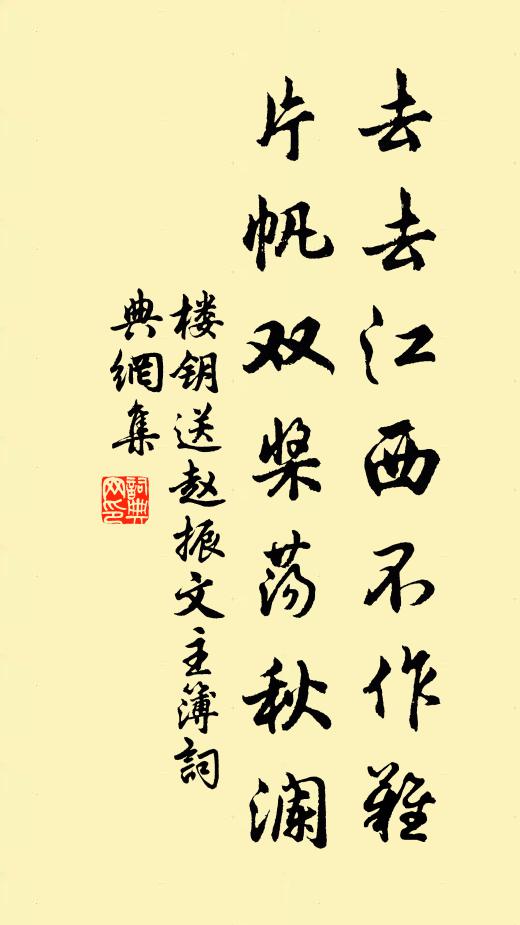 去去江西不作难
片帆双桨荡秋澜
楼钥送赵振文主簿詞
典網集
詞典网印